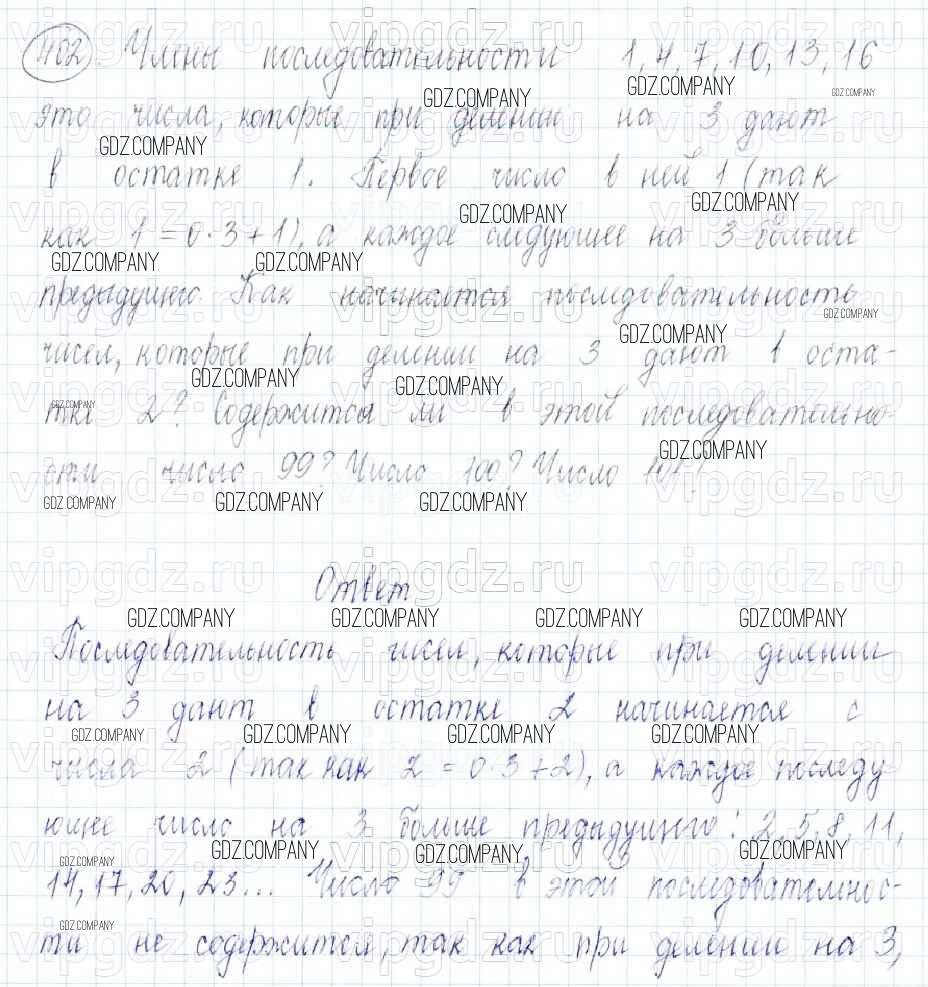 402. Члены последовательности 1, 4, 7, 10, 13, 16
это числа, которые при делении на 3 дают
в остатке 1. Первое число в ней 1 (так
как 1 = 0 · 3 + 1), а каждое следующее на 3 больше
предыдущего. Как начинается последовательность
чисел, которые при делении на 3 дают в оста-
тке 2? Содержится ли в этой последовательно-
сти число 99? Число 100? Число 101?
Ответ
Последовательность чисел, которые при делении
на 3 дают в остатке 2 начинается с
числа 2 (так как 2 = 0 · 3 + 2), а каждое последу
ющее число на 3 больше предыдущего: 2, 5, 8, 11,
14, 17, 20, 23... Число 99 в этой последовательнос-
ти не содержится, так как при делении на 3,